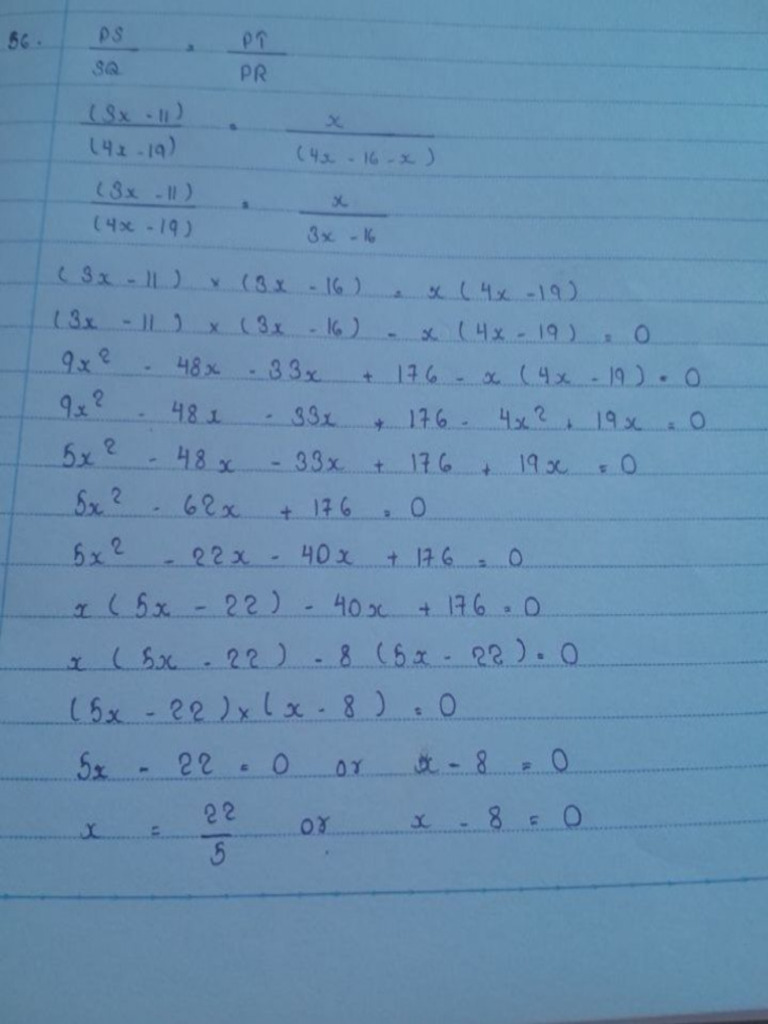 56. PS/SQ = PT/PR
(3x - 11)/(4x - 19) = x/(4x - 16 - x)
(3x - 11)/(4x - 19) = x/(3x - 16)
(3x - 11) × (3x - 16) = x(4x - 19)
(3x - 11) × (3x - 16) - x(4x - 19) = 0
9x² - 48x - 33x + 176 - x(4x - 19) = 0
9x² - 48x - 33x + 176 - 4x² + 19x = 0
5x² - 48x - 33x + 176 + 19x = 0
5x² - 62x + 176 = 0
5x² - 22x - 40x + 176 = 0
x(5x - 22) - 40x + 176 = 0
x(5x - 22) - 8(5x - 22) = 0
(5x - 22) × (x - 8) = 0
5x - 22 = 0 or x - 8 = 0
x = 22/5 or x - 8 = 0